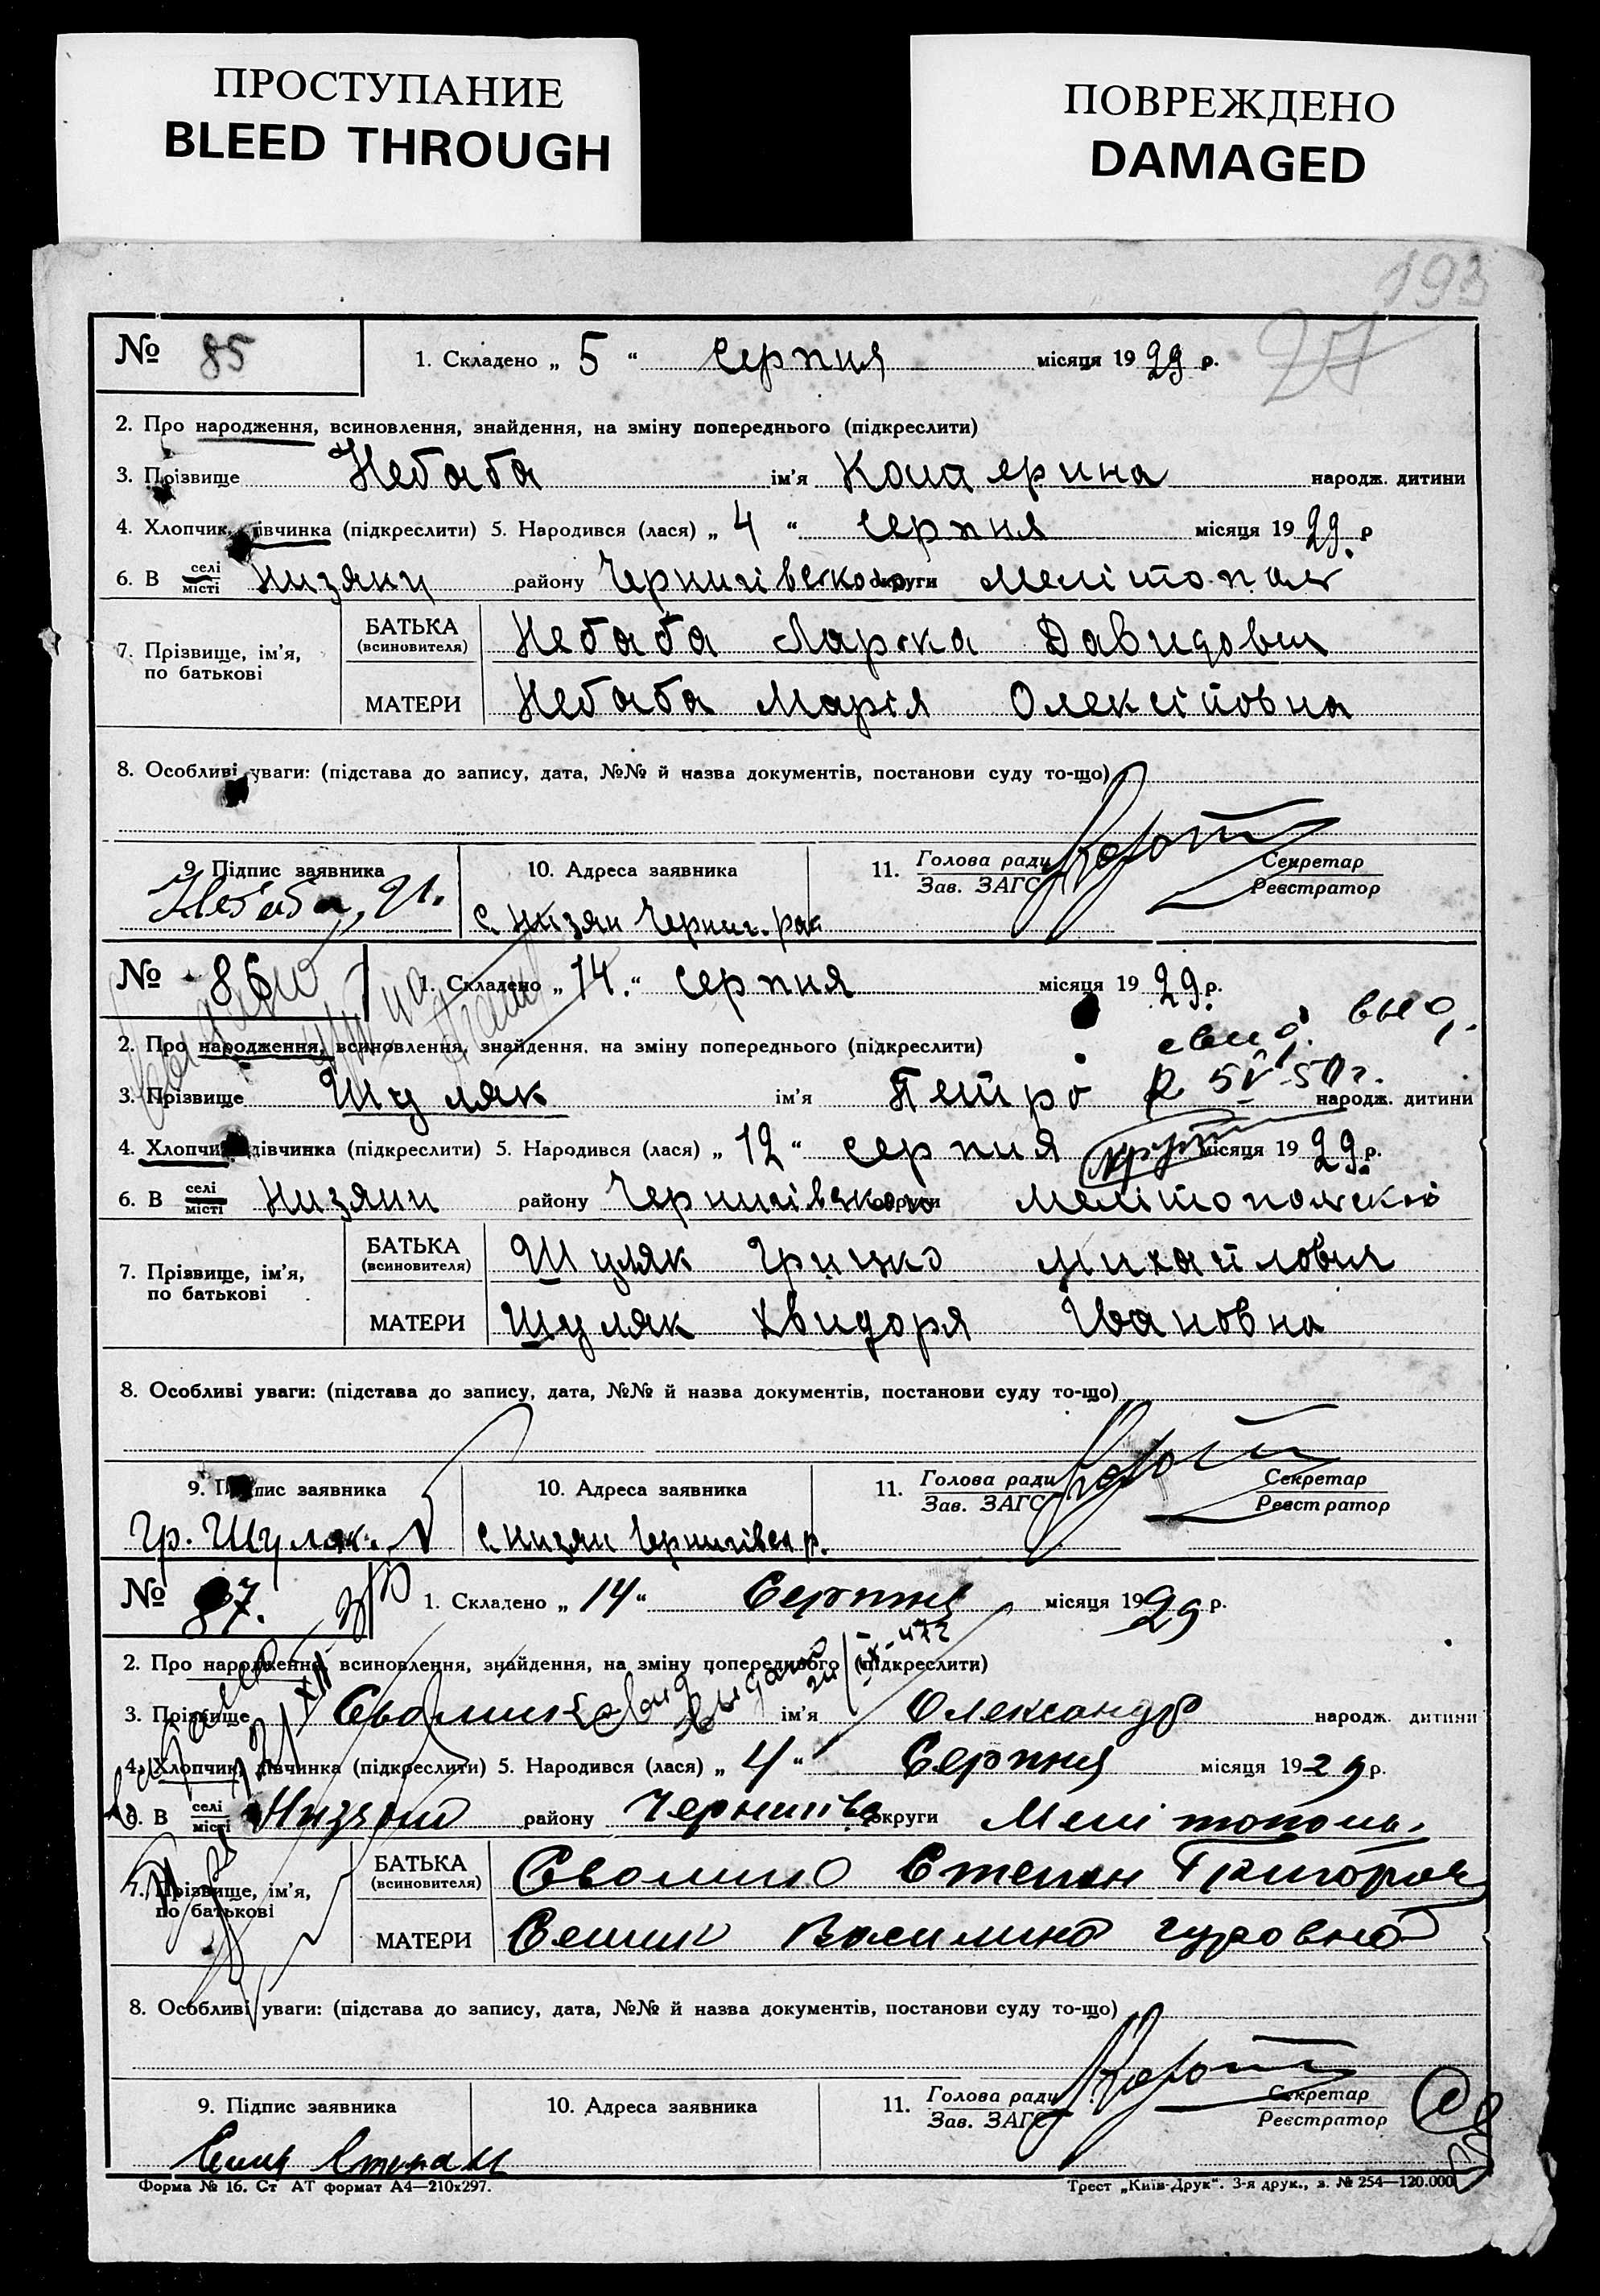 ПРОСТУПАНИЕ
BLEED THROUGH
ПОВРЕЖДЕНО
DAMAGED
193
27
№ 85
1. Складено „ 5 “ Серпня місяця 1929 р.
2. Про народження, всиновлення, знайдення, на зміну попереднього (підкреслити)
3. Прізвище Небаба ім'я Катерина народж. дитини
4. Хлопчик, дівчинка (підкреслити) 5. Народився (лася) „ 4 “ Серпня місяця 1929 р
6. В селі місті Низяни району Чернигівского округи Мелітополь
7. Прізвище, ім'я, по батькові
БАТЬКА (всиновителя) Небаба Ларка Давидович
МАТЕРИ Небаба Марія Олексійовна
8. Особливі уваги: (підстава до запису, дата, №№ й назва документів, постанови суду то-що)
9. Підпис заявника 10. Адреса заявника 11. Голова ради Зав. ЗАГС Секретар Реєстратор
Небаба
с. Низян Черниг. рай
№ 86
1. Складено „ 14. “ Серпня місяця 1929 р.
свид. выд.
2. Про народження, всиновлення, знайдення, на зміну попереднього (підкреслити)
3. Прізвище Шуляк ім'я Петро народж. дитини
4. Хлопчик, дівчинка (підкреслити) 5. Народився (лася) „ 12 “ Серпня місяця 1929 р.
6. В селі місті Низяни району Чернигівского округи Мелітопольскої
7. Прізвище, ім'я, по батькові
БАТЬКА (всиновителя) Шуляк Грицко Михайлович
МАТЕРИ Шуляк Хвидоря Івановна
8. Особливі уваги: (підстава до запису, дата, №№ й назва документів, постанови суду то-що)
9. Підпис заявника 10. Адреса заявника 11. Голова ради Зав. ЗАГС Секретар Реєстратор
Гр. Шуляк.
с Низян Чернигівск р.
№ 87.
1. Складено „ 14 “ Серпня місяця 1929 р.
2. Про народження, всиновлення, знайдення, на зміну попереднього (підкреслити)
3. Прізвище ім'я Олександр народж. дитини
4. Хлопчик, дівчинка (підкреслити) 5. Народився (лася) „ 4 “ Серпня місяця 1929 р.
6. В селі місті Низяни району Чернигівс округи Мелітополь.
7. Прізвище, ім'я, по батькові
БАТЬКА (всиновителя) Степан Григоров
МАТЕРИ Василина Гуровна
8. Особливі уваги: (підстава до запису, дата, №№ й назва документів, постанови суду то-що)
9. Підпис заявника 10. Адреса заявника 11. Голова ради Зав. ЗАГС Секретар Реєстратор
Степан
Форма № 16. Ст АТ формат А4—210x297.
Трест „Київ-Друк“. 3-я друк., з. № 254—120.000